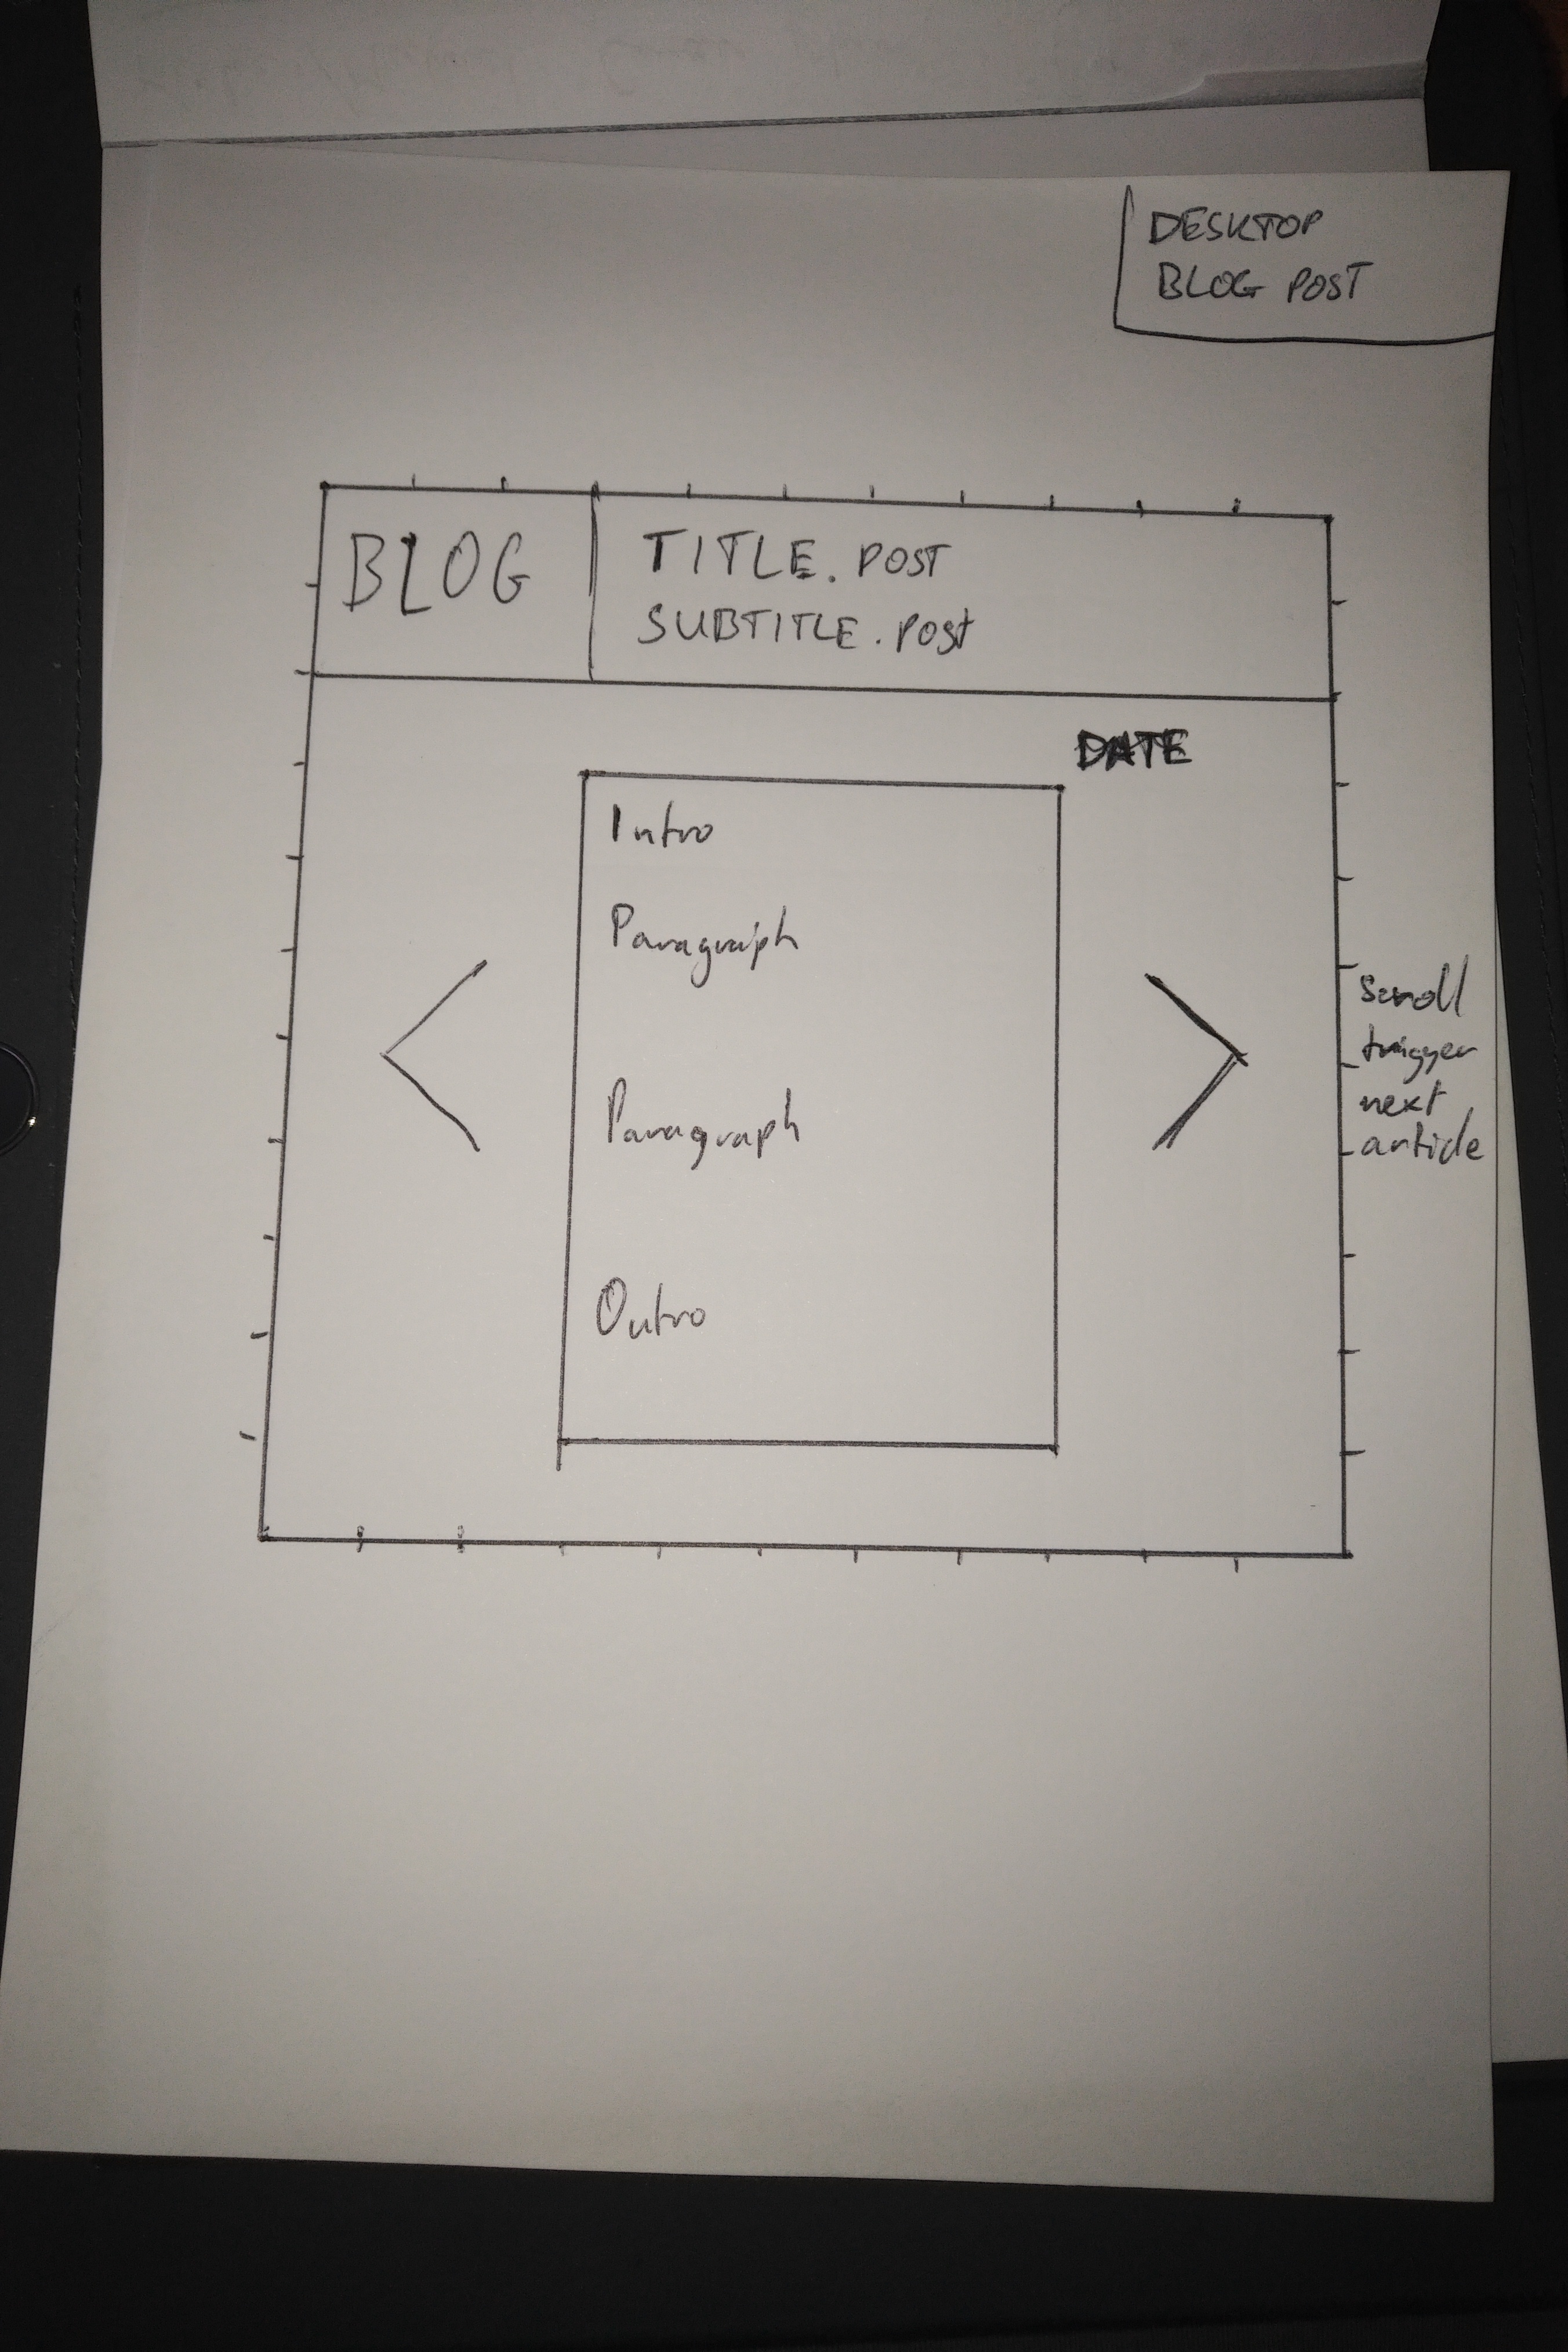 DESKTOP
BLOG POST
BLOG
TITLE.POST
SUBTITLE.POST
DATE
Intro
Paragraph
Paragraph
Outro
scroll
trigger
next
article